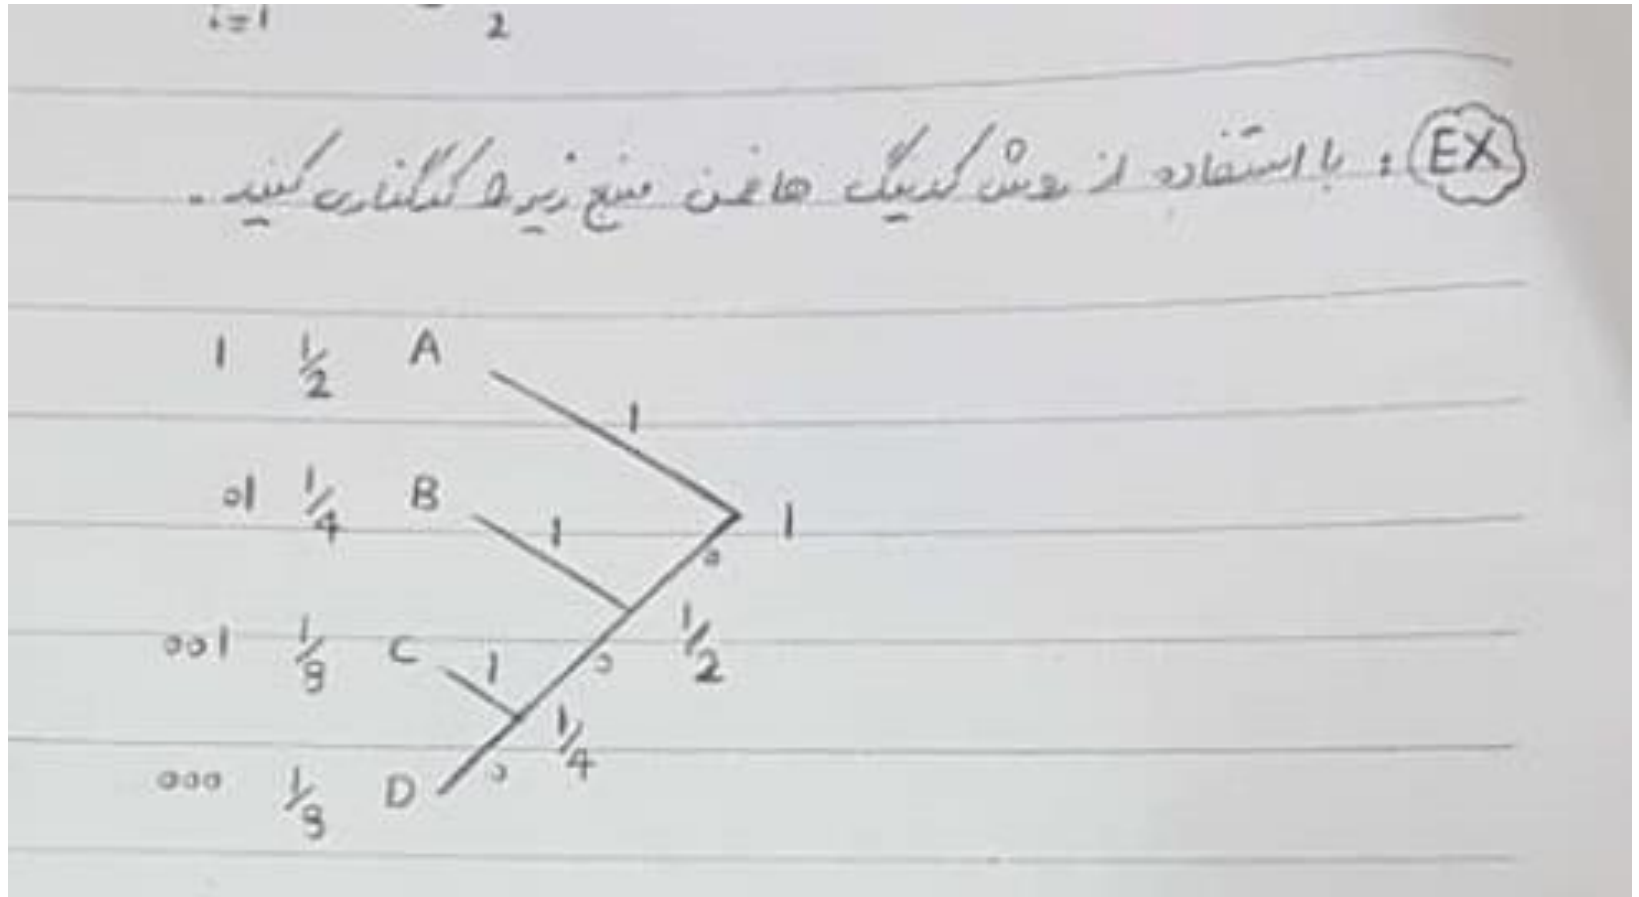 i=1 2
EX : با استفاده از روش کدینگ هافمن منبع زیر را کدگذاری کنید.
1 1/2 A
1
01 1/4 B
1 1
0
001 1/8 C 1 0 1/2
1/4
000 1/8 D 0